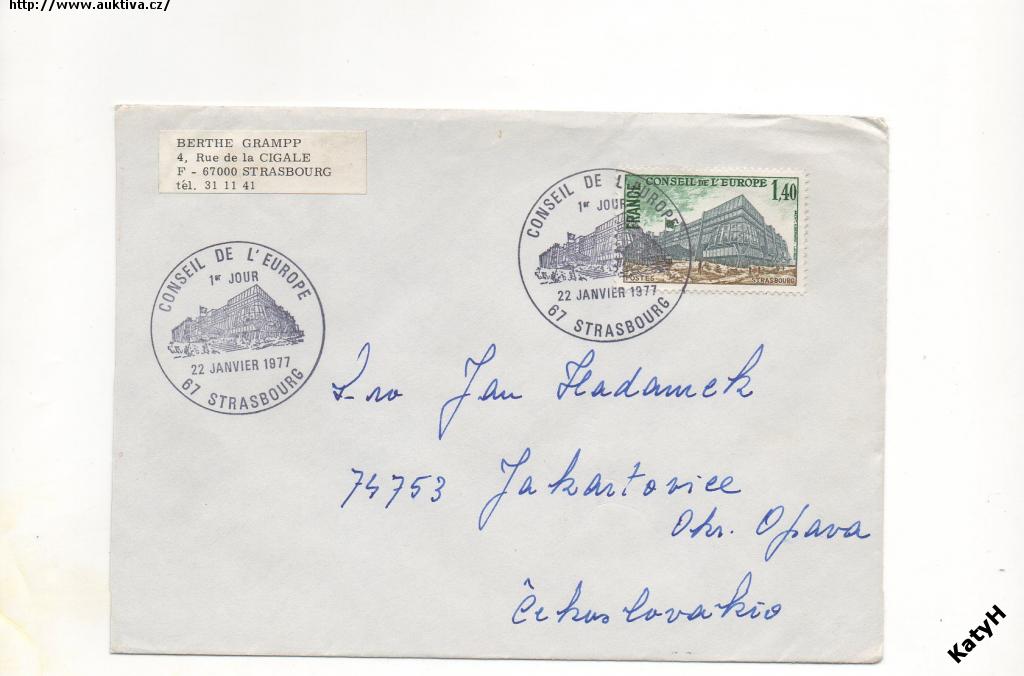 http://www.auktiva.cz/
BERTHE GRAMPP
4, Rue de la CIGALE
F - 67000 STRASBOURG
tél. 31 11 41
CONSEIL DE L'EUROPE
1er JOUR
22 JANVIER 1977
67 STRASBOURG
CONSEIL DE L'EUROPE
1er JOUR
22 JANVIER 1977
67 STRASBOURG
FRANCE
CONSEIL DE L'EUROPE
1,40
POSTES
STRASBOURG
Jan Hadamek
74753 Jakartovice
Okr. Opava
Čekoslovakio
KatyH